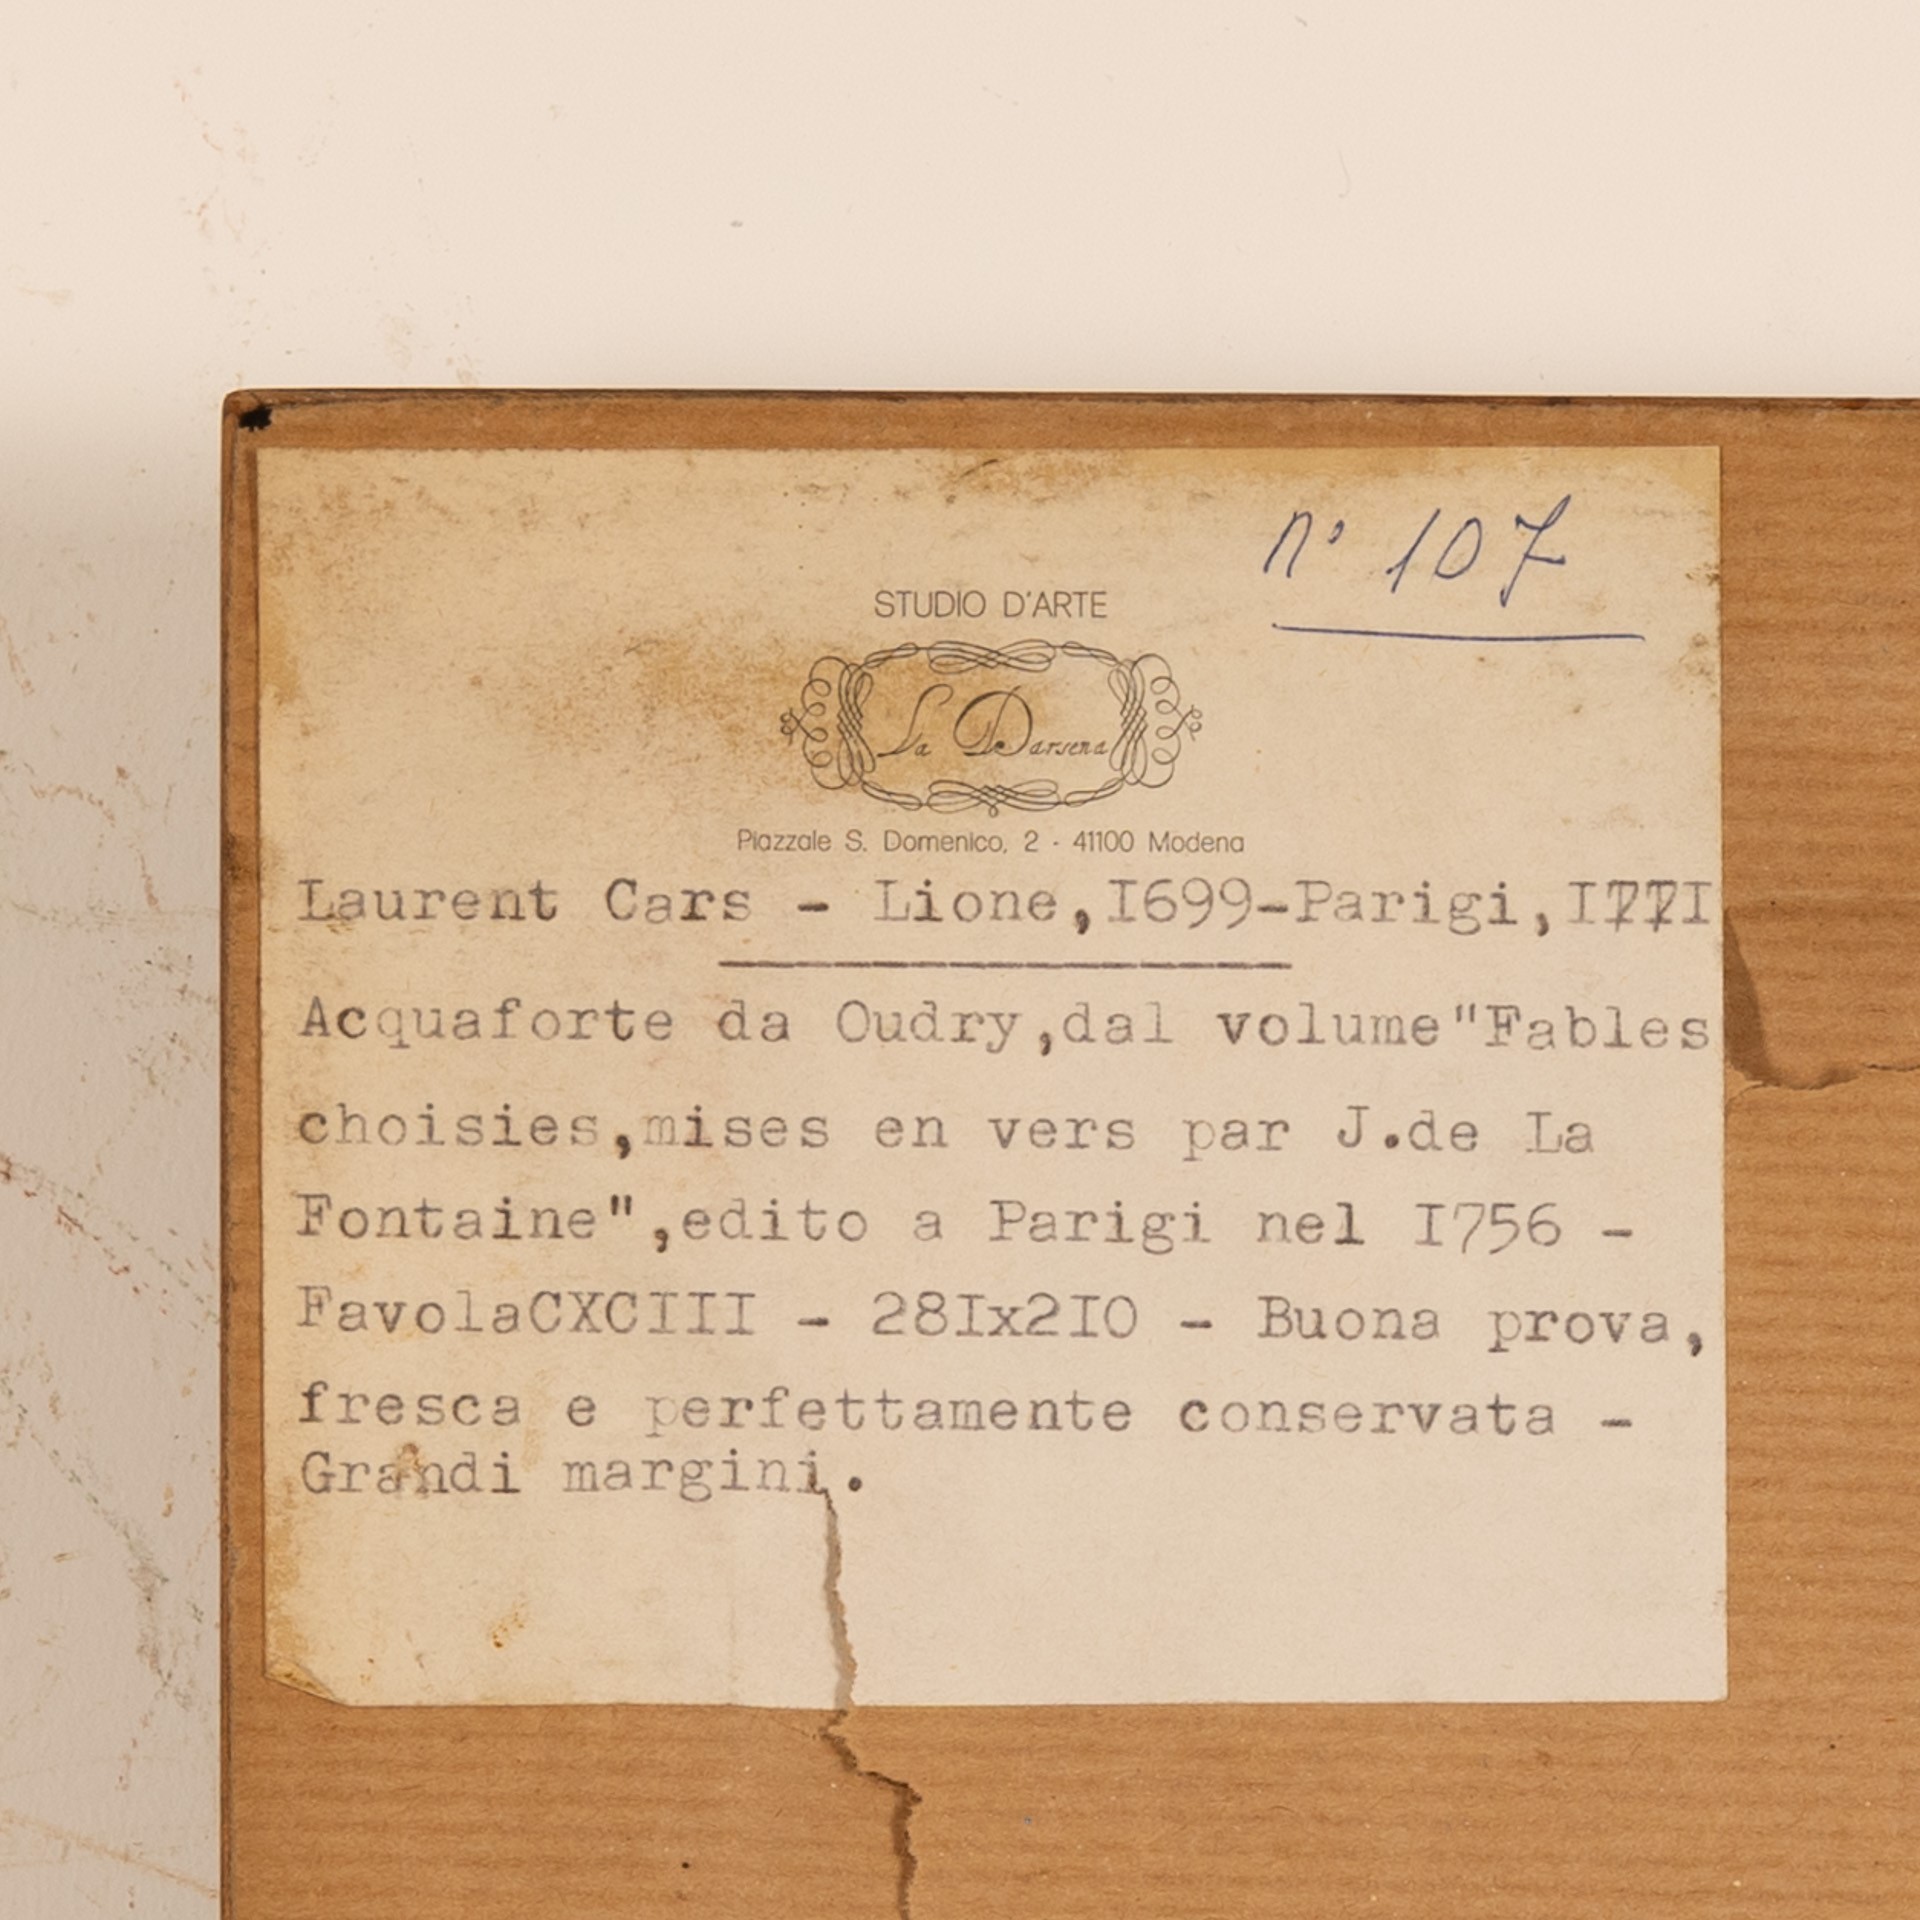 n° 107
STUDIO D'ARTE
La Darsena
Piazzale S. Domenico, 2 - 41100 Modena
Laurent Cars - Lione,I699-Parigi,I77I
Acquaforte da Oudry,dal volume"Fables
choisies,mises en vers par J.de La
Fontaine",edito a Parigi nel I756 -
FavolaCXCIII - 28Ix2I0 - Buona prova,
fresca e perfettamente conservata -
Grandi margini.